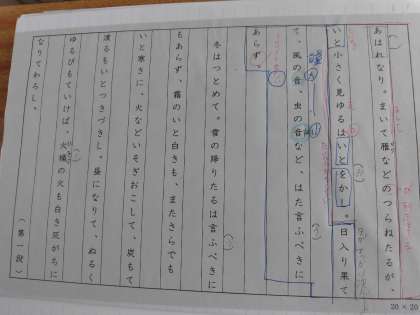 あはれなり。まいて雁などのつらねたるが、
いと小さく見ゆるはいとをかし。日入り果て
て、風の音、虫の音など、はた言ふべきに
あらず。
冬はつとめて。雪の降りたるは言ふべきに
もあらず、霜のいと白きも、またさらでも
いと寒きに、火などいそぎおこして、炭もて
渡るもいとつきづきし。昼になりて、ぬるく
ゆるびもていけば、火桶の火も白き灰がちに
なりてわろし。
(第一段)
20×20